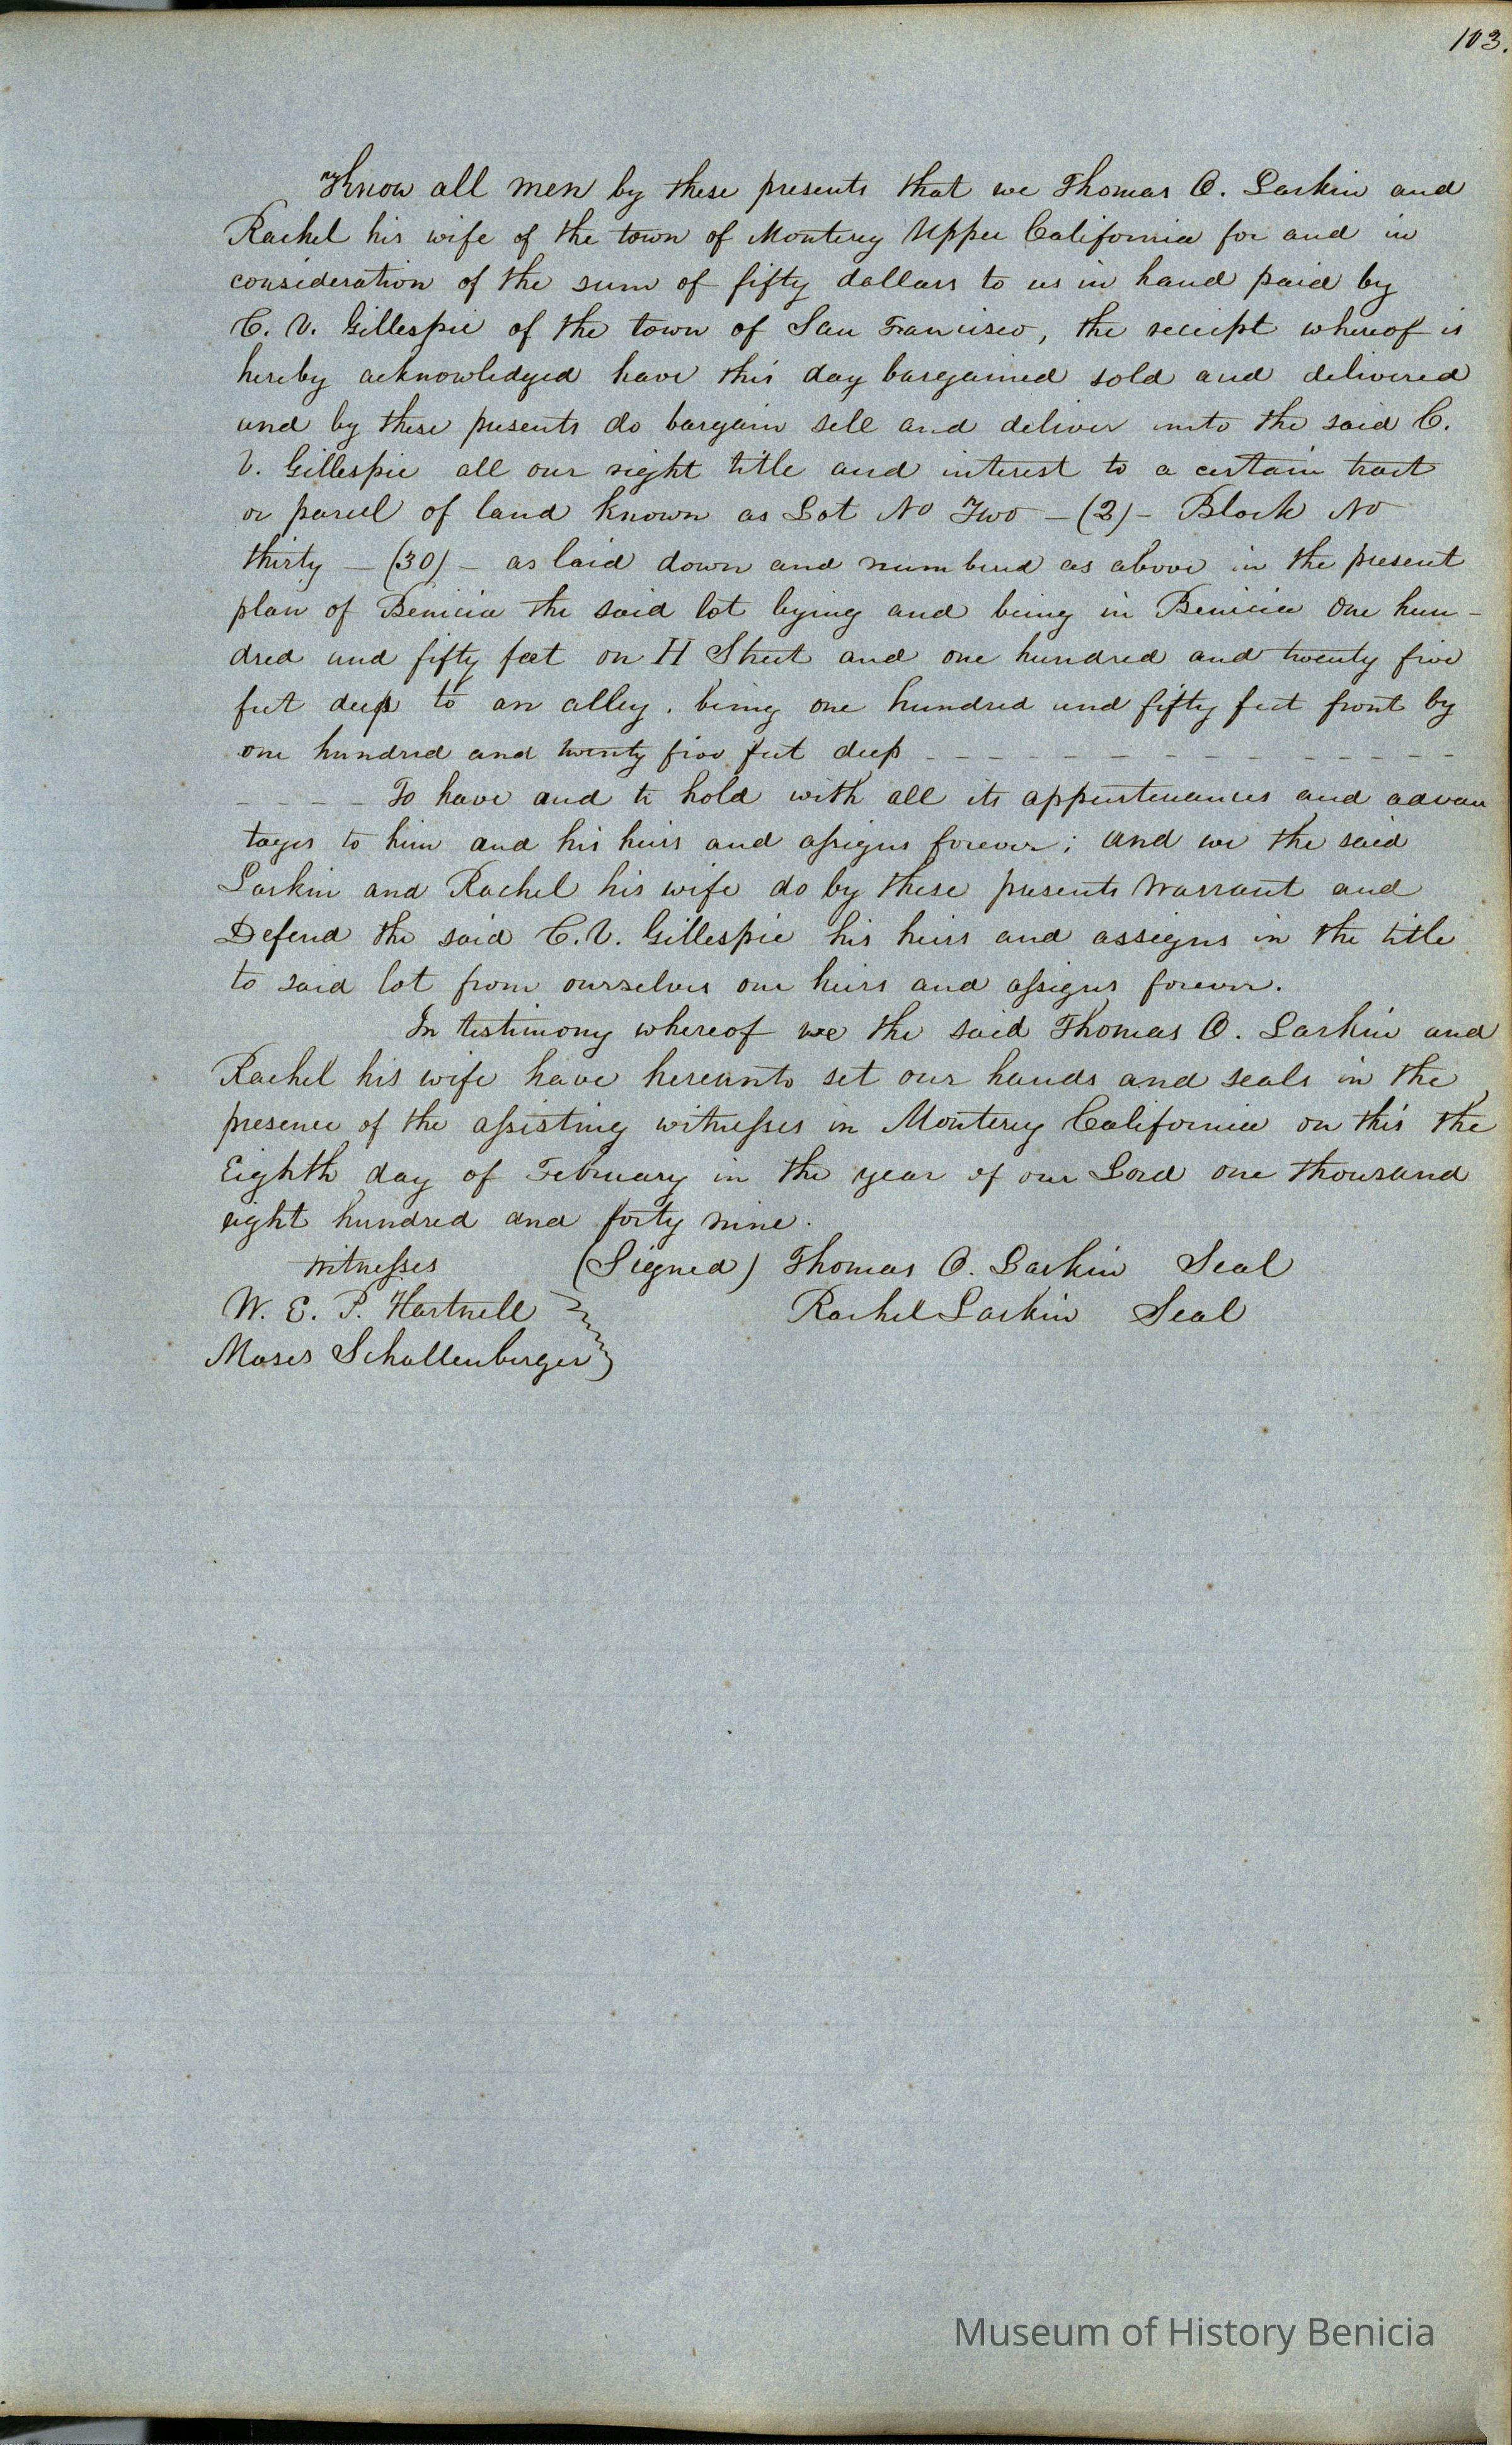 103.
Know all men by these presents that we Thomas O. Larkin and
Rachel his wife of the town of Monterey Upper California for and in
consideration of the sum of fifty dollars to us in hand paid by
C. V. Gillespie of the town of San Francisco, the receipt whereof is
hereby acknowledged have this day bargained sold and delivered
and by these presents do bargain sell and deliver unto the said C.
V. Gillespie all our right title and interest to a certain tract
or parcel of land known as Lot No Two - (2) - Block No
thirty - (30) - as laid down and numbered as above in the present
plan of Benicia the said lot lying and being in Benicia one hun-
dred and fifty feet on H Street and one hundred and twenty five
feet deep to an alley. being one hundred and fifty feet front by
one hundred and twenty five feet deep - - - - - - - - - - - - - -
- - - - To have and to hold with all its appurtenances and advan
tages to him and his heirs and assigns forever; and we the said
Larkin and Rachel his wife do by these presents Warrant and
Defend the said C. V. Gillespie his heirs and assigns in the title
to said lot from ourselves our heirs and assigns forever.
In testimony whereof we the said Thomas O. Larkin and
Rachel his wife have hereunto set our hands and seals in the
presence of the assisting witnesses in Monterey California on this the
Eighth day of February in the year of our Lord one thousand
eight hundred and forty nine.
Witnesses (Signed) Thomas O. Larkin Seal
W. E. P. Hartnell Rachel Larkin Seal
Moses Schallenberger
Museum of History Benicia